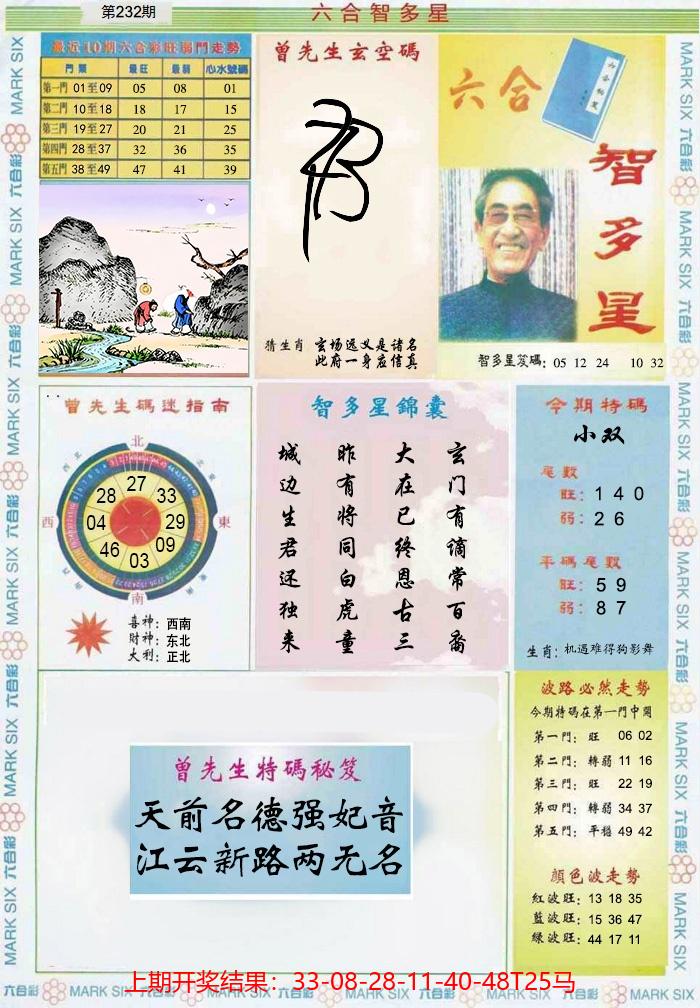 第232期
六合智多星
最近10期六合彩旺弱門走勢
門類 最旺 最弱 心水號碼
第一門 01至09 05 08 01
第二門 10至18 18 17 15
第三門 19至27 20 21 25
第四門 28至37 32 36 35
第五門 38至49 47 41 39
曾先生玄空碼
猜生肖 玄场远义是诸名
此府一身应信真
六合
六合秘笈
智多星
智多星笈碼: 05 12 24 10 32
曾先生碼迷指南
北
西北
東北
西
東
南
27
28 33
04 29
46 09
03
喜神: 西南
财神: 东北
大利: 正北
智多星錦囊
玄门有谪常百裔
大在已终恩古三
昨有将同白虎童
城边生君还独来
今期特碼
小双
尾數
旺: 1 4 0
弱: 2 6
平碼尾數
旺: 5 9
弱: 8 7
生肖: 机遇难得狗影舞
曾先生特碼秘笈
天前名德强妃音
江云新路两无名
波路必然走勢
今期特碼在第一門中開
第一門: 旺 06 02
第二門: 轉弱 11 16
第三門: 旺 22 19
第四門: 轉弱 34 37
第五門: 平穩 49 42
顏色波走勢
紅波旺: 13 18 35
藍波旺: 15 36 47
綠波旺: 44 17 11
上期开奖结果：33-08-28-11-40-48T25马
MARK SIX 六合彩 MARK SIX 六合彩 MARK SIX 六合彩 MARK SIX 六合彩